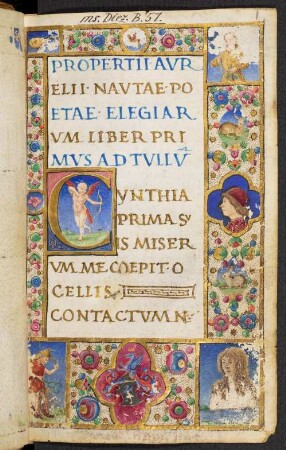 ms. Diez. B. 57.
1
PROPERTII AVR
ELII · NAVTAE · PO
ETAE · ELEGIAR
VM LIBER PRI
MVS AD TVLLV̅
CYNTHIA
PRIMA S'
IS MISER
VM · ME COEPIT · O
CELLIS
CONTACTVM N ·